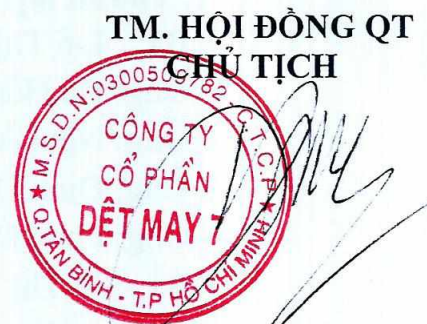 TM. HỘI ĐỒNG QT
CHỦ TỊCH
M.S.D.N:0300509782 . C.T.C.P
CÔNG TY
CỔ PHẦN
DỆT MAY 7
Q.TÂN BÌNH - T.P HỒ CHÍ MINH